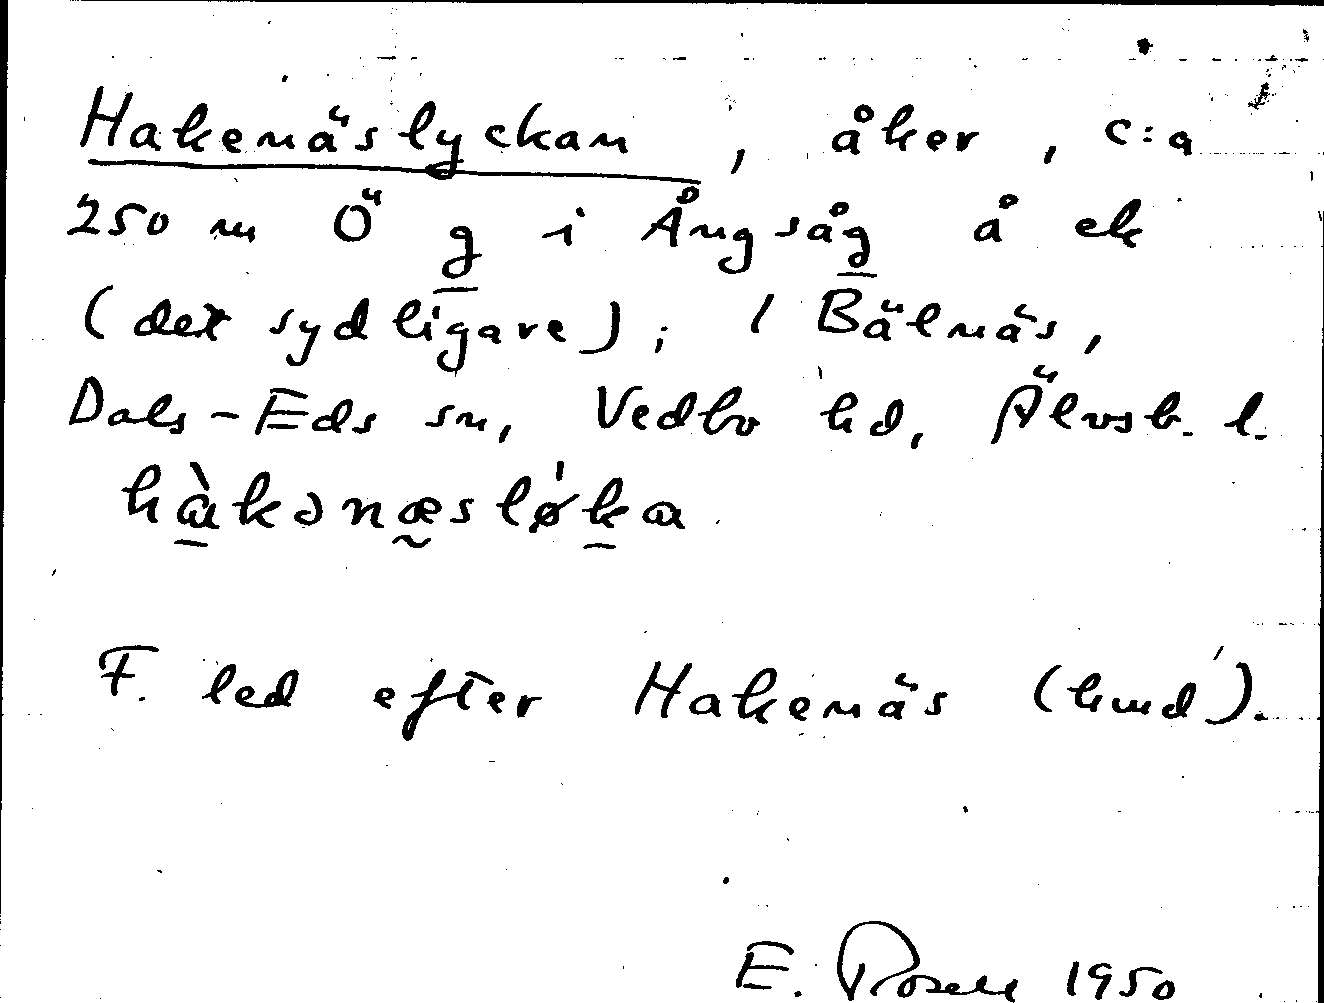 Hakenäslyckan, åker, c:a
250 m Ö g i Ångsåg å ek
(det sydligare); 1 Bälnäs,
Dals-Eds sn, Vedbo hd, Älvsb. l.
hὰkənæsløka
F. led efter Hakenäs (hmd).
E. Rosell 1950